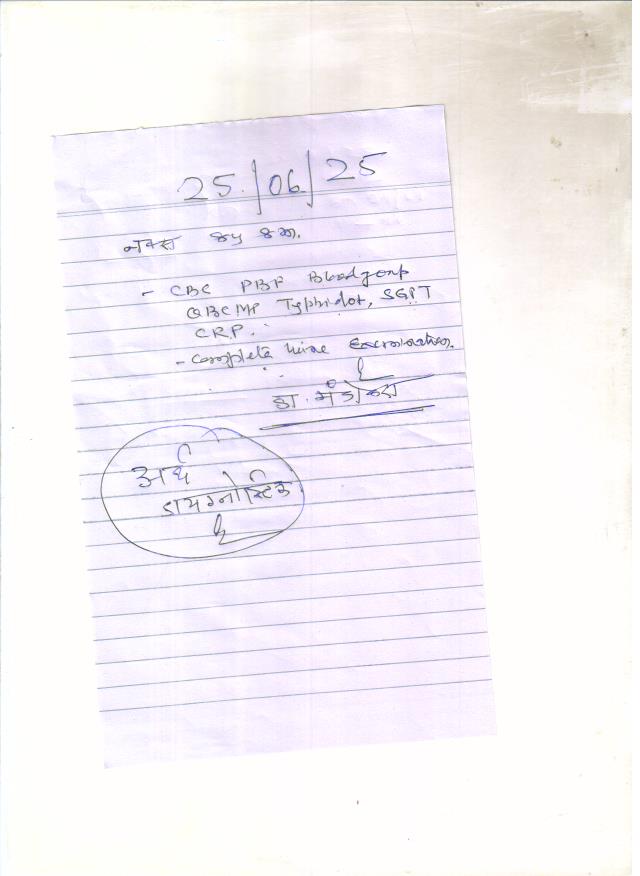 25/06/25
- CBC PBF Bloodgroup
QBCMP Typhidot, SGPT
CRP.
- Complete Urine Examination.
डा.
अर्थ
डायग्नोस्टिक